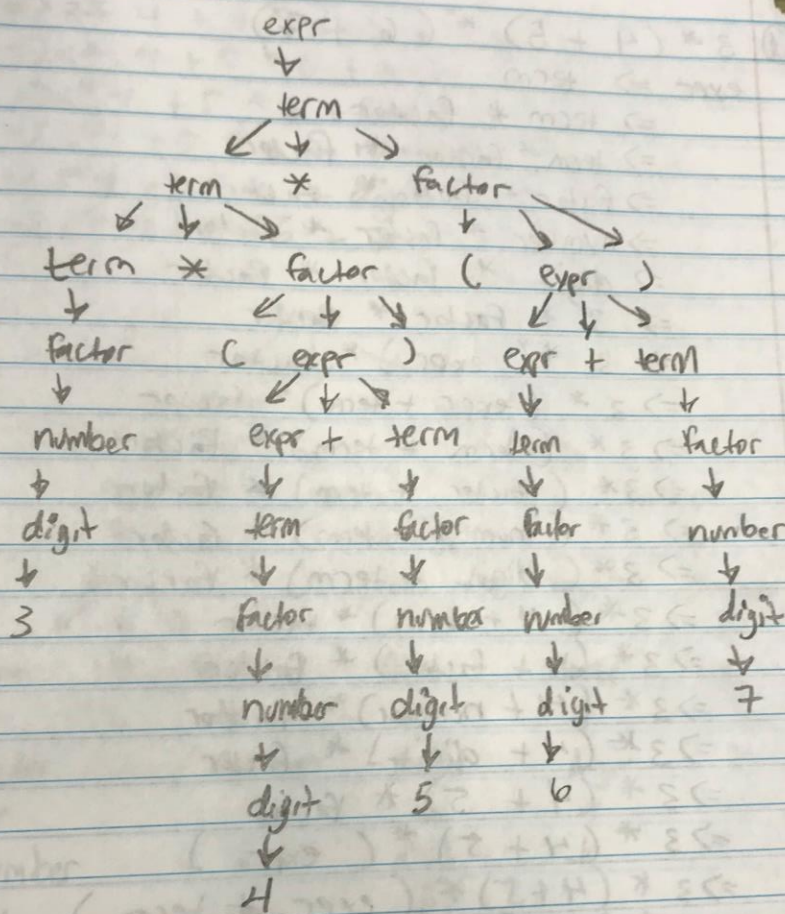 expr
term
term * factor
term * factor ( expr )
factor ( expr ) expr + term
number expr + term term factor
digit term factor factor number
3 factor number number digit
number digit digit 7
digit 5 6
4